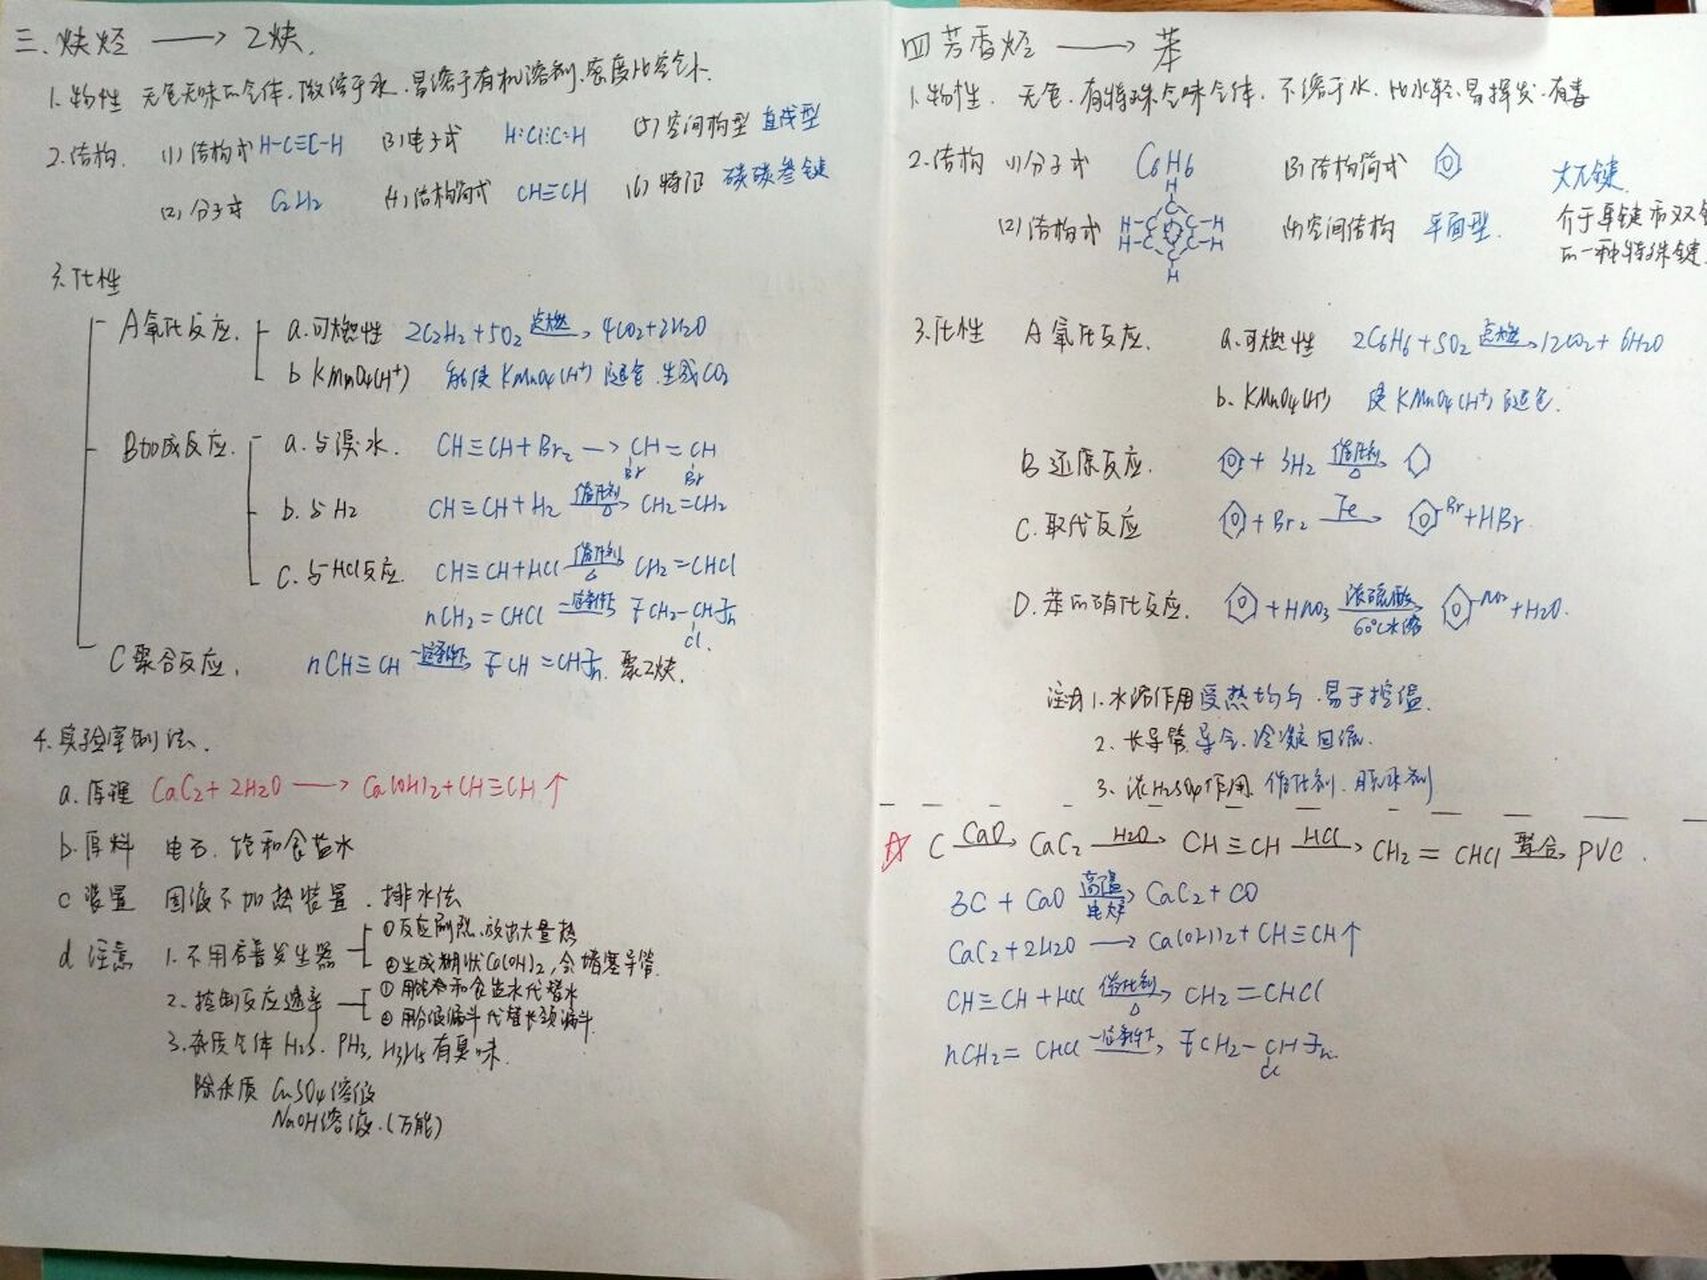 三、炔烃 ⟶ 乙炔.
1.物性 无色无味的气体.微溶于水.易溶于有机溶剂.密度比空气小.
2.结构. (1)结构式 H-C≡C-H (3)电子式 (5)空间构型 直线型
(2)分子式 C2H2 (4)结构简式 CH≡CH (6)特征 碳碳叁键
3.化性
A氧化反应. a.可燃性 2C2H2+5O2 点燃→ 4CO2+2H2O
b KMnO4(H+) 能使KMnO4(H+)褪色.生成CO2
B加成反应. a.与溴水. CH≡CH+Br2 → CH=CH
Br Br
b.与H2 CH≡CH+H2 催化剂→ CH2=CH2
△
C.与HCl反应. CH≡CH+HCl 催化剂→ CH2=CHCl
△
nCH2=CHCl 一定条件下→ [CH2-CH]n
Cl.
C聚合反应. nCH≡CH 一定条件下→ [CH=CH]n. 聚乙炔.
4.实验室制法.
a.原理 CaC2+2H2O ⟶ Ca(OH)2+CH≡CH↑
b.原料 电石.饱和食盐水
c装置 固液不加热装置.排水法
d注意 1.不用启普发生器 ①反应剧烈.放出大量热
②生成糊状Ca(OH)2,会堵塞导管.
2.控制反应速率 ①用饱和食盐水代替水
②用分液漏斗代替长颈漏斗
3.杂质气体H2S. PH3, 有臭味.
除杂质 CuSO4溶液
NaOH溶液.(万能)
四 芳香烃 ⟶ 苯
1.物性. 无色.有特殊气味气体.不溶于水.比水轻.易挥发.有毒
2.结构 (1)分子式 C6H6 (3)结构简式 大π键.
(2)结构式 (4)空间结构 平面型. 介于单键和双键
H
C
H-C C-H
H-C C-H
C
H
的一种特殊键.
3.化性 A氧化反应. a.可燃性 2C6H6+5O2 点燃→12CO2+6H2O
b.KMnO4(H+) 使KMnO4(H+)褪色.
B还原反应. +3H2 催化剂→
△
C.取代反应 +Br2 Fe→ Br+HBr.
D.苯的硝化反应. +HNO3 浓硫酸→ NO2+H2O.
60℃水浴
注明 1.水浴作用 受热均匀.易于控温.
2.长导管 导气.冷凝回流.
3.浓H2SO4作用. 催化剂.脱水剂
☆ C CaO→ CaC2 H2O→ CH≡CH HCl→ CH2=CHCl 聚合→ PVC.
3C+CaO 高温→ CaC2+CO
电炉
CaC2+2H2O ⟶ Ca(OH)2+CH≡CH↑
CH≡CH+HCl 催化剂→ CH2=CHCl
△
nCH2=CHCl 一定条件下→ [CH2-CH]n.
Cl